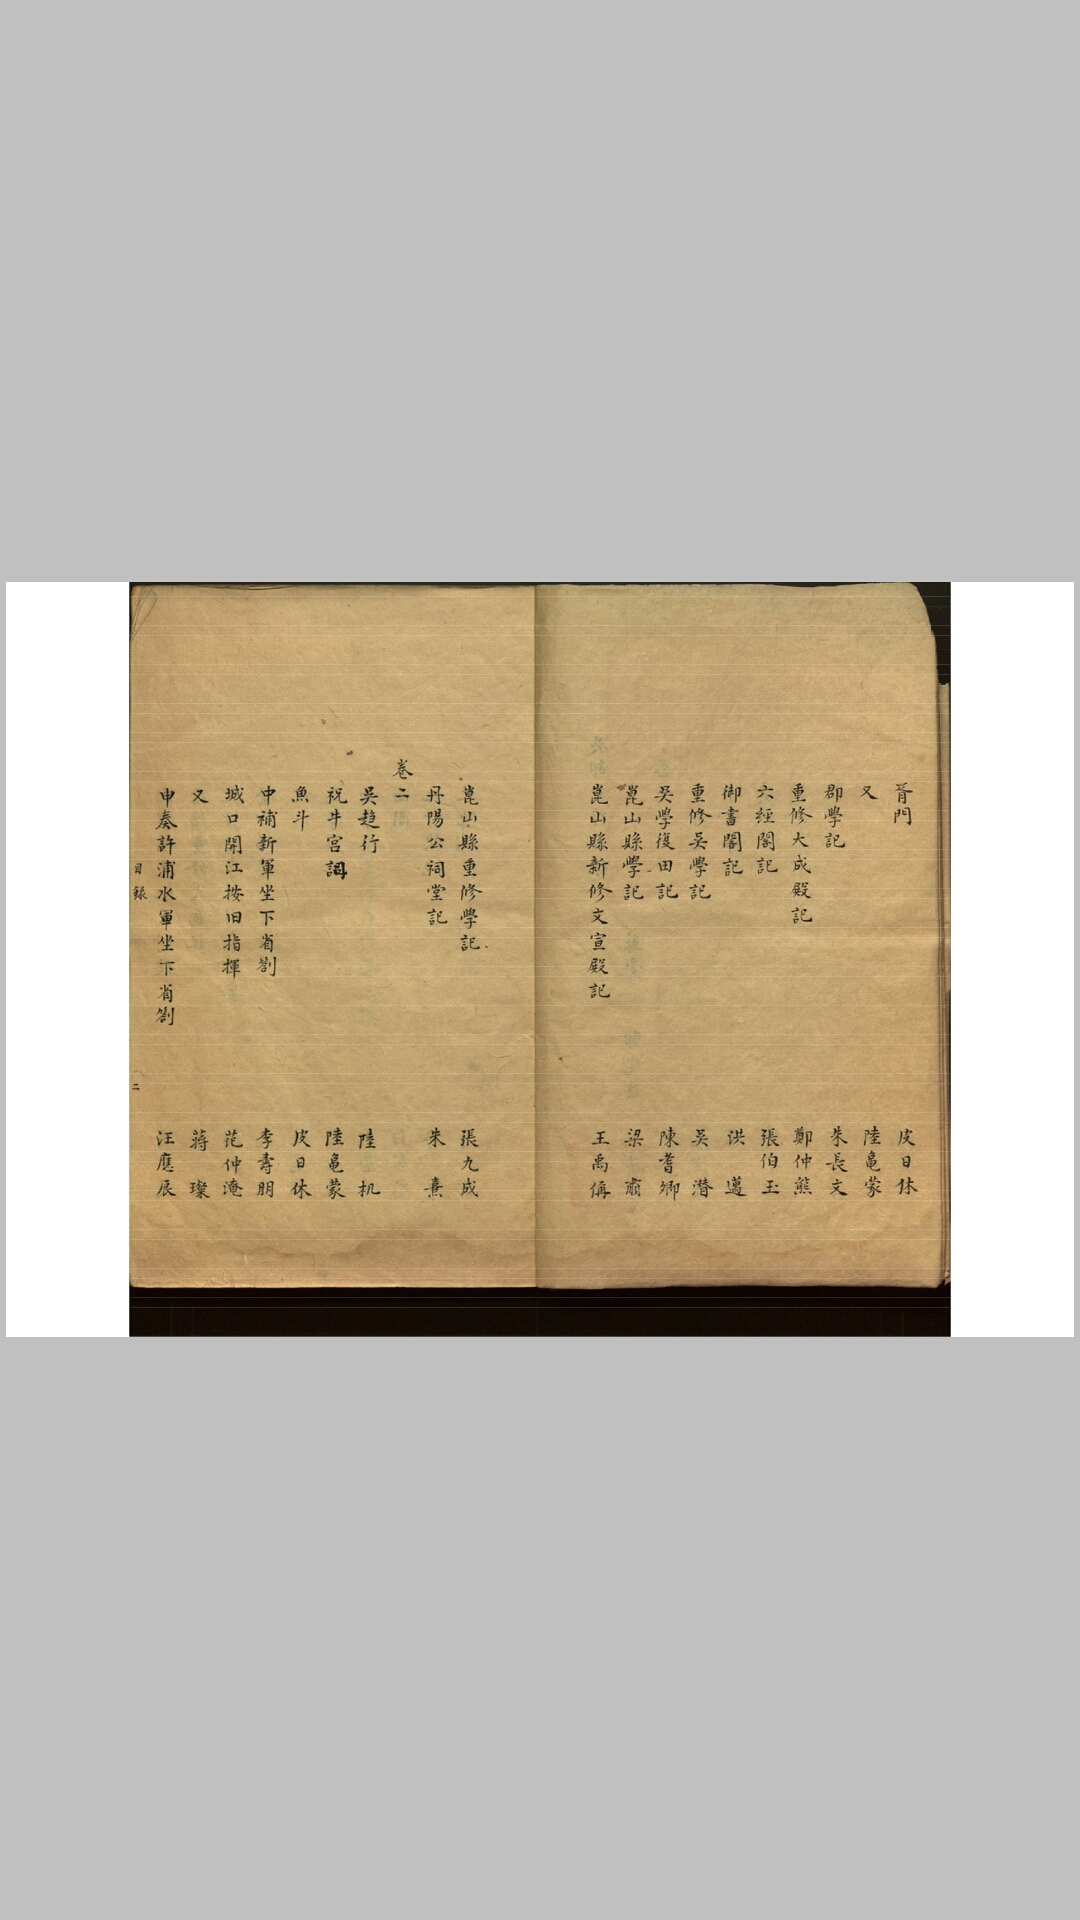 胥門　皮日休
又　陸龜蒙
郡學記　朱長文
重修大成殿記　鄭仲熊
六經閣記　張伯玉
御書閣記　洪邁
重修吳學記　吳潛
吳學復田記　陳耆卿
崑山縣學記　梁肅
崑山縣新修文宣殿記　王禹偁
崑山縣重修學記　張九成
丹陽公祠堂記　朱熹
卷二
吳趨行　陸机
祝牛宮詞　陸龜蒙
魚斗　皮日休
申補新軍坐下省劄　李壽朋
城口開江按旧指揮　范仲淹
又　蔣璨
申奏許浦水軍坐下省劄　汪應辰
目錄　二